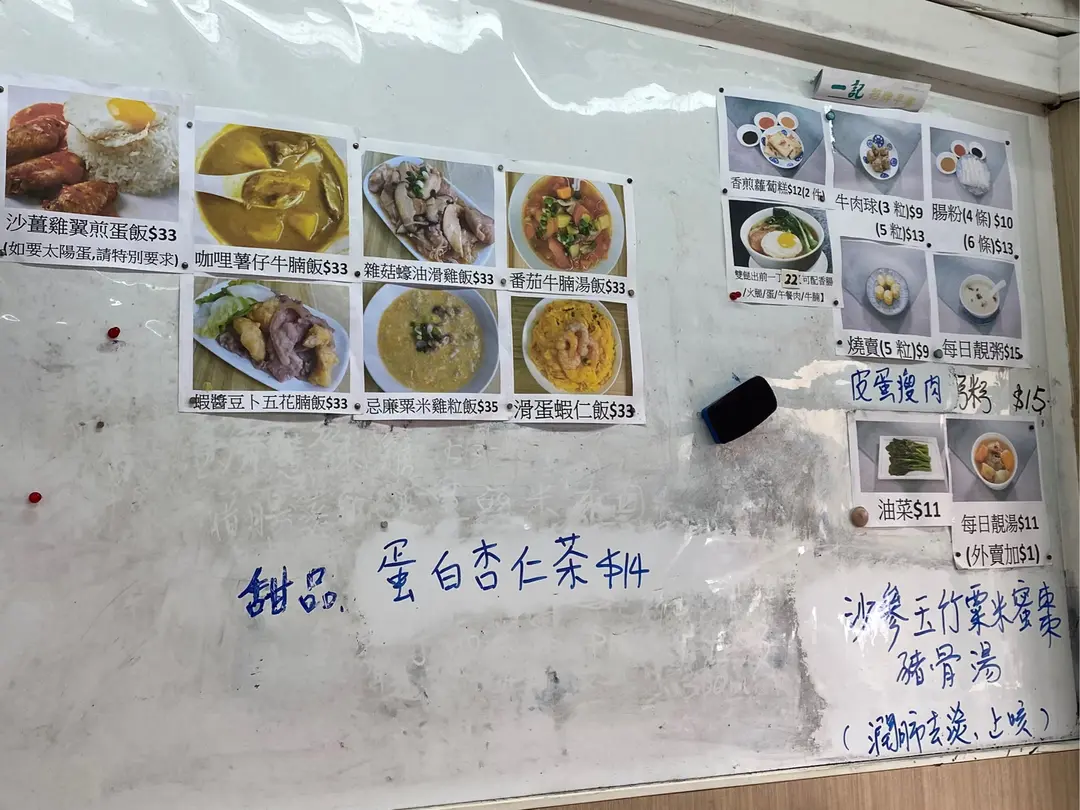 沙薑雞翼煎蛋飯$33
(如要太陽蛋,請特別要求)
咖哩薯仔牛腩飯$33
雜菇蠔油滑雞飯$33
番茄牛腩湯飯$33
蝦醬豆卜五花腩飯$33
忌廉粟米雞粒飯$35
滑蛋蝦仁飯$33
一記
香煎蘿蔔糕$12(2件)
牛肉球(3 粒)$9
(5 粒)$13
腸粉(4 條) $10
(6 條)$13
雙餸出前一丁 22 可配香腸
/火腿/蛋/午餐肉/牛腩】
燒賣(5 粒)$9
每日靚粥$15
皮蛋瘦肉粥 $15
油菜$11
每日靚湯$11
(外賣加$1)
甜品 蛋白杏仁茶 $14
沙參玉竹粟米蜜棗
豬骨湯
(潤肺去燥、止咳)